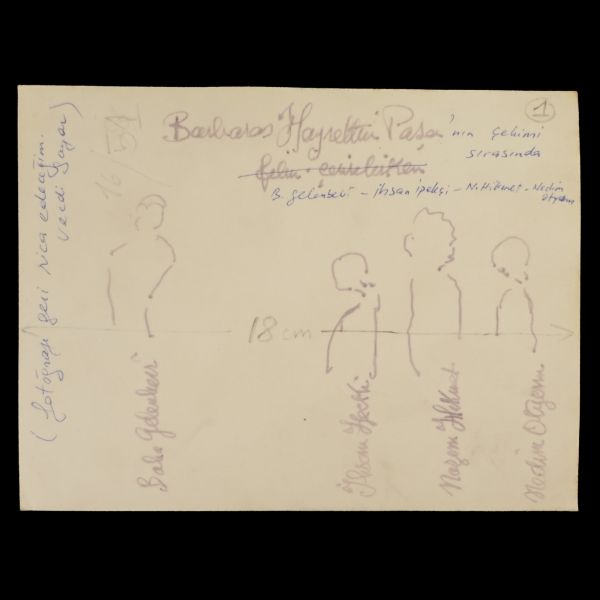 1
Barbaros Hayrettin Paşa'nın çekimi
sırasında
film çevrilirken
B. Gelenbevi - İhsan İpekçi - N. Hikmet - Nedim
Otyam
(fotoğrafı geri rica edeceğim.
Vecdi Sayar)
16/51
18 cm
Baha Gelenbevi
İhsan İpekçi
Nazım Hikmet
Nedim Otyam